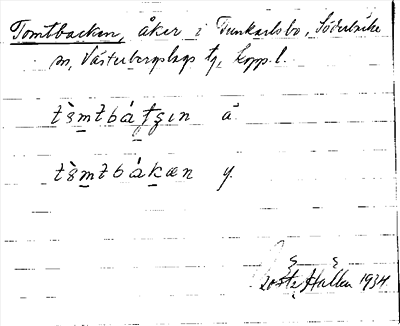 Tomtbacken, åker i Tunkarlsbo, Söderbärke
sn, Västerbergslags tg, Kopp. l.
tɷ̀mtbáʈʂɪn ä.
tɷ̀mtbákæn y.
Gösta Hallen 1934.